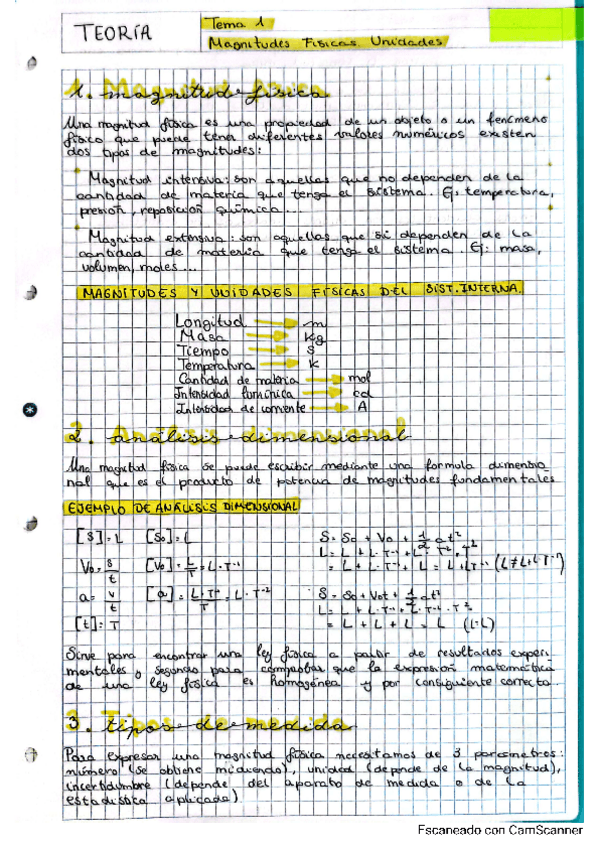 TEORÍA
Tema 1
Magnitudes Físicas. Unidades
1. magnitud física
Una magnitud física es una propiedad de un objeto o un fenómeno
físico que puede tener diferentes valores numéricos existen
dos tipos de magnitudes:
Magnitud intensiva: son aquellas que no dependen de la
cantidad de materia que tenga el sistema. Ej: temperatura,
presión, reposición química...
Magnitud extensiva: son aquellas que si dependen de la
cantidad de materia que tenga el sistema. Ej: masa,
volumen, moles...
MAGNITUDES Y UNIDADES FÍSICAS DEL SIST. INTERNA.
Longitud → m
Masa → kg
Tiempo → s
Temperatura → K
Cantidad de materia → mol
Intensidad lumínica → cd
Intensidad de corriente → A
2. análisis dimensional
Una magnitud física se puede escribir mediante una formula dimensio
nal que es el producto de potencia de magnitudes fundamentales
EJEMPLO DE ANÁLISIS DIMENSIONAL
[S] = L [S₀] = L S = S₀ + V₀ + 1/2 at²
V₀ = s/t [V₀] = L/T = L·T⁻¹ L = L + L·T⁻¹ + L·T⁻²·T²
= L + L·T⁻¹ + L = L + L T⁻¹ (L ≠ L+L T⁻¹)
a = v/t [a] = L·T⁻¹/T = L·T⁻² S = S₀ + V₀t + 1/2 at²
L = L + L·T⁻¹·T + L·T⁻²·T²
[t] = T = L + L + L = L (L=L)
Sirve para encontrar una ley física a partir de resultados experi
mentales y segundo para comprobar que la expresión matemática
de una ley física es homogénea y por consiguiente correcta.
3. tipos de medida
Para expresar una magnitud física necesitamos de 3 parámetros:
número (se obtiene midiendo), unidad (depende de la magnitud),
incertidumbre (depende del aparato de medida o de la
estadística aplicada)
Escaneado con CamScanner